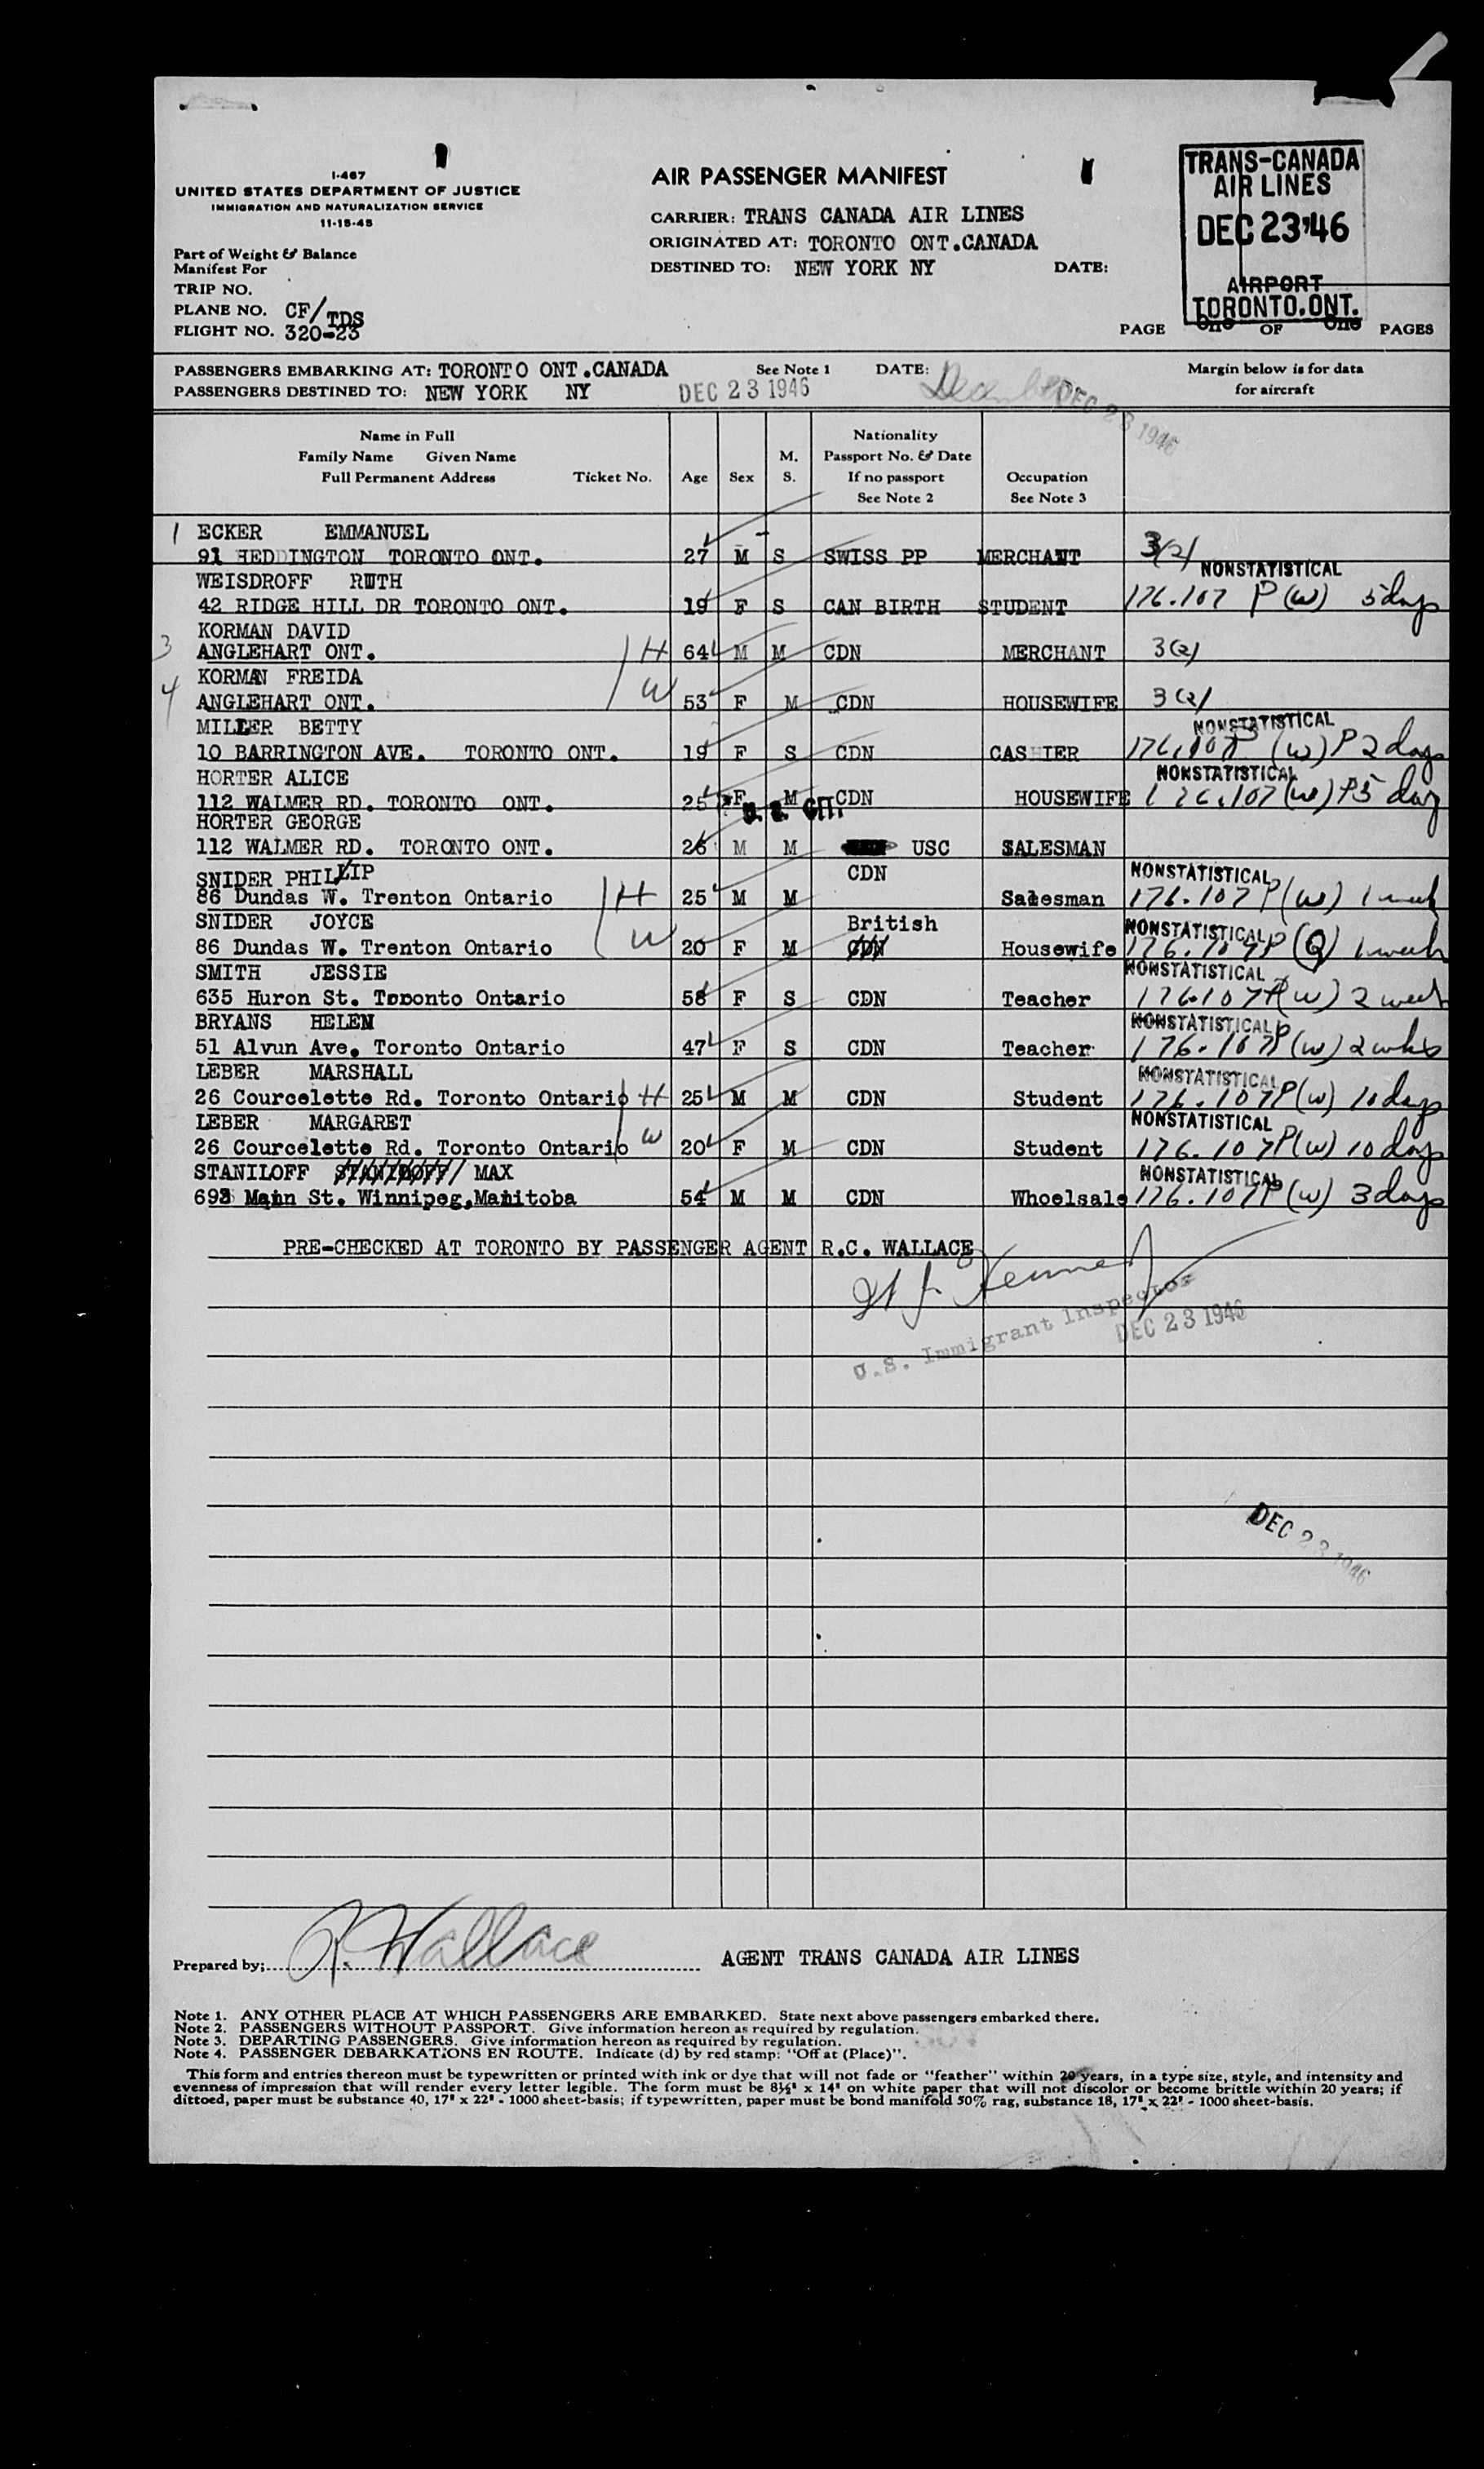 I-467
UNITED STATES DEPARTMENT OF JUSTICE
IMMIGRATION AND NATURALIZATION SERVICE
11-15-45
AIR PASSENGER MANIFEST
CARRIER: TRANS CANADA AIR LINES
ORIGINATED AT: TORONTO ONT.CANADA
DESTINED TO: NEW YORK NY DATE:
TRANS-CANADA
AIR LINES
DEC 23 '46
AIRPORT
TORONTO.ONT.
Part of Weight & Balance
Manifest For
TRIP NO.
PLANE NO. CF/TDS
FLIGHT NO. 320-23
PAGE One OF One PAGES
PASSENGERS EMBARKING AT: TORONTO ONT.CANADA See Note 1 DATE: December DEC 23 1946
PASSENGERS DESTINED TO: NEW YORK NY DEC 23 1946
Margin below is for data
for aircraft
Name in Full
Family Name Given Name
Full Permanent Address Ticket No. Age Sex M. S.
Nationality
Passport No. & Date
If no passport
See Note 2
Occupation
See Note 3
1 ECKER EMMANUEL
91 HEDDINGTON TORONTO ONT. 27 M S SWISS PP MERCHANT 3(2)
WEISDROFF RUTH NONSTATISTICAL
42 RIDGE HILL DR TORONTO ONT. 19 F S CAN BIRTH STUDENT 176.107 P(W) 5 days
3 KORMAN DAVID
ANGLEHART ONT. H 64 M M CDN MERCHANT 3(2)
4 KORMAN FREIDA
ANGLEHART ONT. W 53 F M CDN HOUSEWIFE 3(2)
MILLER BETTY NONSTATISTICAL
10 BARRINGTON AVE. TORONTO ONT. 19 F S CDN CASHIER 176.107P (W) P 2 days
HORTER ALICE NONSTATISTICAL
112 WALMER RD. TORONTO ONT. 25 F M CDN HOUSEWIFE 176.107(W) P5 day
HORTER GEORGE U. S. CIT.
112 WALMER RD. TORONTO ONT. 26 M M USC SALESMAN
SNIDER PHILLIP CDN NONSTATISTICAL
86 Dundas W. Trenton Ontario H 25 M M Salesman 176.107 P(W) 1 week
SNIDER JOYCE British NONSTATISTICAL
86 Dundas W. Trenton Ontario W 20 F M CDN Housewife 176.107P (Q) 1 week
SMITH JESSIE NONSTATISTICAL
635 Huron St. Toronto Ontario 58 F S CDN Teacher 176.107P(W) 2 week
BRYANS HELEN NONSTATISTICAL
51 Alvun Ave. Toronto Ontario 47 F S CDN Teacher 176.107P(W) 2 wks
LEBER MARSHALL NONSTATISTICAL
26 Courcelette Rd. Toronto Ontario H 25 M M CDN Student 176.107P(W) 10 days
LEBER MARGARET NONSTATISTICAL
26 Courcelette Rd. Toronto Ontario W 20 F M CDN Student 176.107P(W) 10 days
STANILOFF MAX NONSTATISTICAL
693 Main St. Winnipeg,Manitoba 54 M M CDN Whoelsale 176.107P(W) 3 days
PRE-CHECKED AT TORONTO BY PASSENGER AGENT R.C. WALLACE
U.S. Immigrant Inspector
DEC 23 1946
DEC 23 1946
Prepared by; R. Wallace AGENT TRANS CANADA AIR LINES
Note 1. ANY OTHER PLACE AT WHICH PASSENGERS ARE EMBARKED. State next above passengers embarked there.
Note 2. PASSENGERS WITHOUT PASSPORT. Give information hereon as required by regulation.
Note 3. DEPARTING PASSENGERS. Give information hereon as required by regulation.
Note 4. PASSENGER DEBARKATIONS EN ROUTE. Indicate (d) by red stamp: "Off at (Place)".
This form and entries thereon must be typewritten or printed with ink or dye that will not fade or "feather" within 20 years, in a type size, style, and intensity and
evenness of impression that will render every letter legible. The form must be 8½" x 14" on white paper that will not discolor or become brittle within 20 years; if
dittoed, paper must be substance 40, 17" x 22" - 1000 sheet-basis; if typewritten, paper must be bond manifold 50% rag, substance 18, 17" x 22" - 1000 sheet-basis.